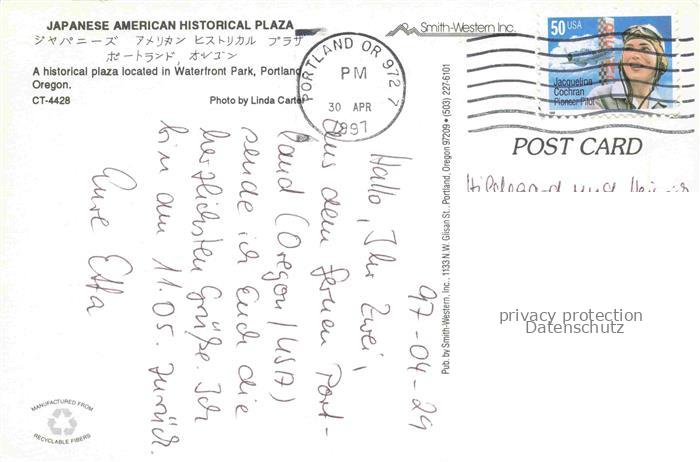 JAPANESE AMERICAN HISTORICAL PLAZA
ジャパニーズ アメリカン ヒストリカル プラザ
ポートランド, オレゴン
A historical plaza located in Waterfront Park, Portland
Oregon.
CT-4428 Photo by Linda Carter
Smith-Western Inc.
PORTLAND OR 9727
PM
30 APR
1997
50 USA
Jacqueline
Cochran
Pioneer Pilot
POST CARD
Hildegard und
97-04-29
Hallo, Ihr Zwei,
Aus dem fernen Port-
land (Oregon/USA)
sende ich Euch die
herzlichsten Grüße. Ich
bin am 11.05. zurück.
Eure Etta
Pub. by Smith-Western, Inc., 1133 N.W. Glisan St., Portland, Oregon 97209 • (503) 227-6101
privacy protection
Datenschutz
MANUFACTURED FROM
RECYCLABLE FIBERS